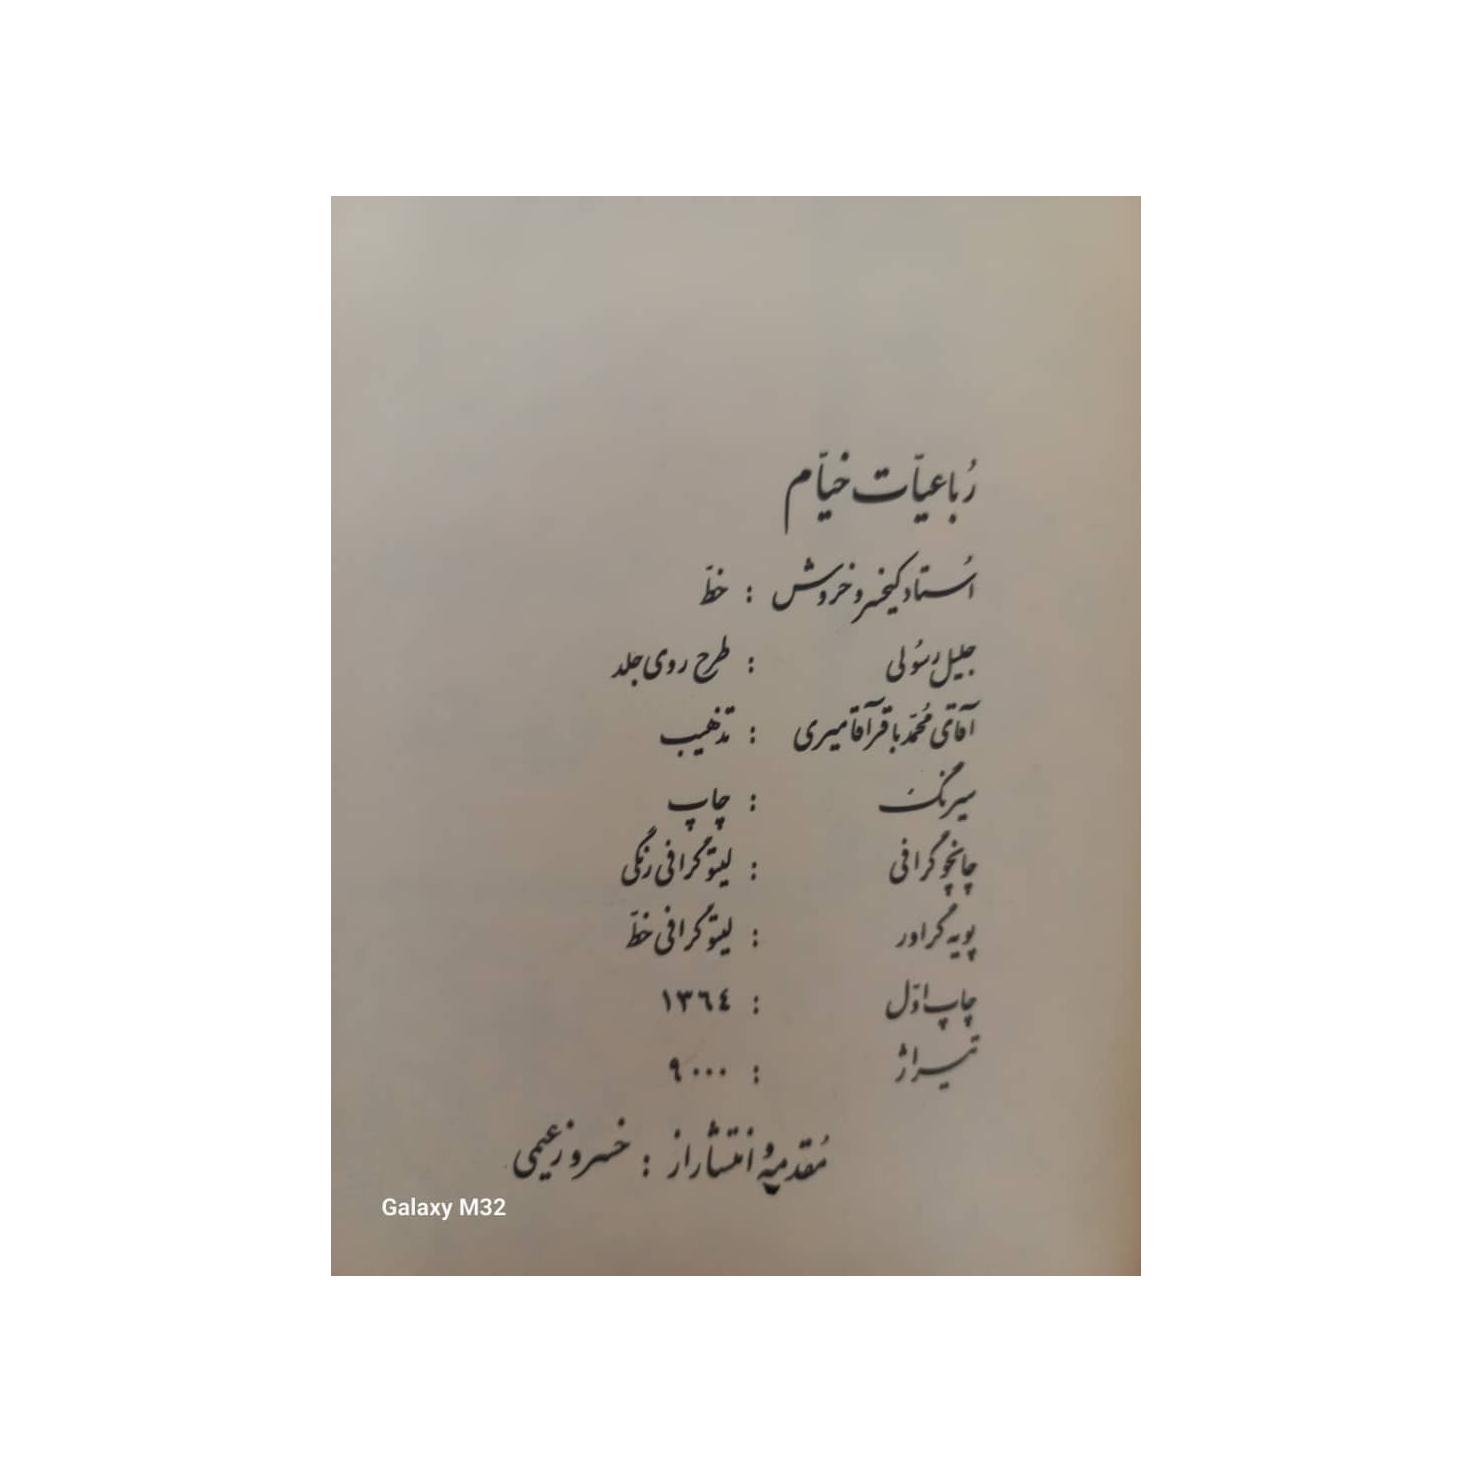 رُباعیّات خیّام
اُستاد کیخسرو خروش : خطّ
جلیل رسُولی : طرح روی جلد
آقای مُحمّد باقر آقامیری : تذهیب
سیرنگ : چاپ
چاپخوگرافی : لیتوگرافی رنگی
پویه گراور : لیتوگرافی خطّ
چاپ اوّل : ١٣٦٤
تیراژ : ٩٠٠٠
مُقدمه و انتشار از : خسرو زعیمی
Galaxy M32